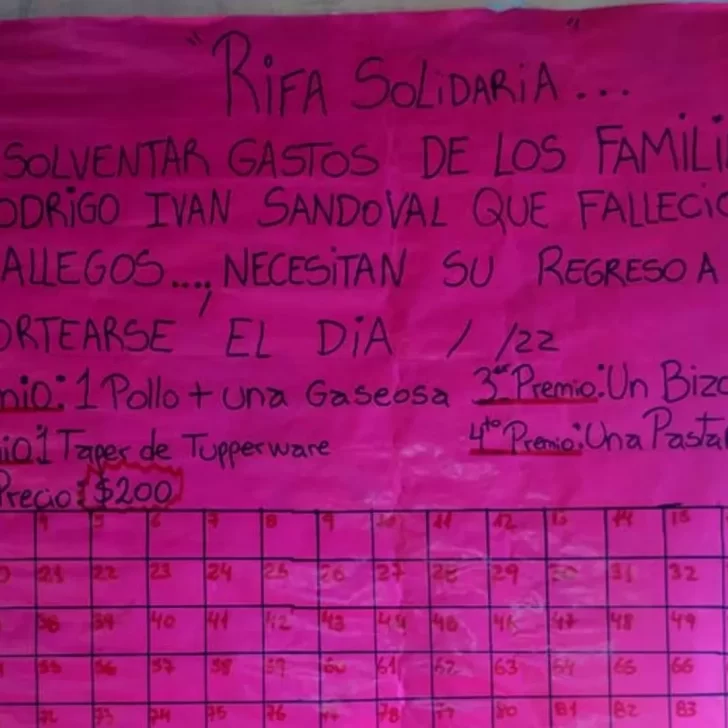 "Rifa Solidaria"...
SOLVENTAR GASTOS DE LOS FAMILI
ODRIGO IVAN SANDOVAL QUE FALLECIO
ALLEGOS...., NECESITAN SU REGRESO A
ORTEARSE EL DIA / /22
mio: 1 Pollo + una Gaseosa 3er Premio: Un Bizc
io: 1 Taper de Tupperware 4to Premio: Una Pasta
Precio: $200
4 5 6 7 8 9 10 11 12 13 14 15
0 21 22 23 24 25 26 27 28 29 30 31 32
38 39 40 41 42 43 44 45 46 47 48 49
55 56 57 58 59 60 61 62 63 64 65 66
72 73 74 75 76 77 78 79 80 81 82 83